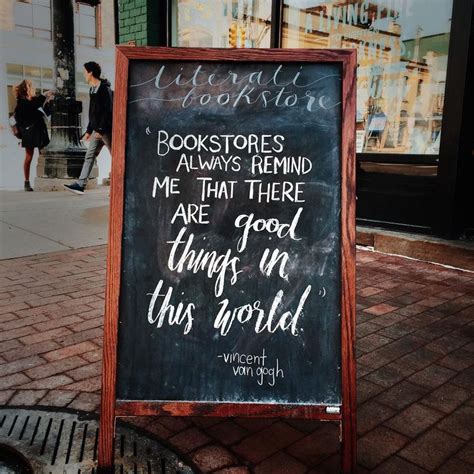 literati
bookstore
"BOOKSTORES
ALWAYS REMIND
ME THAT THERE
ARE good
things in
this world."
-vincent
van gogh